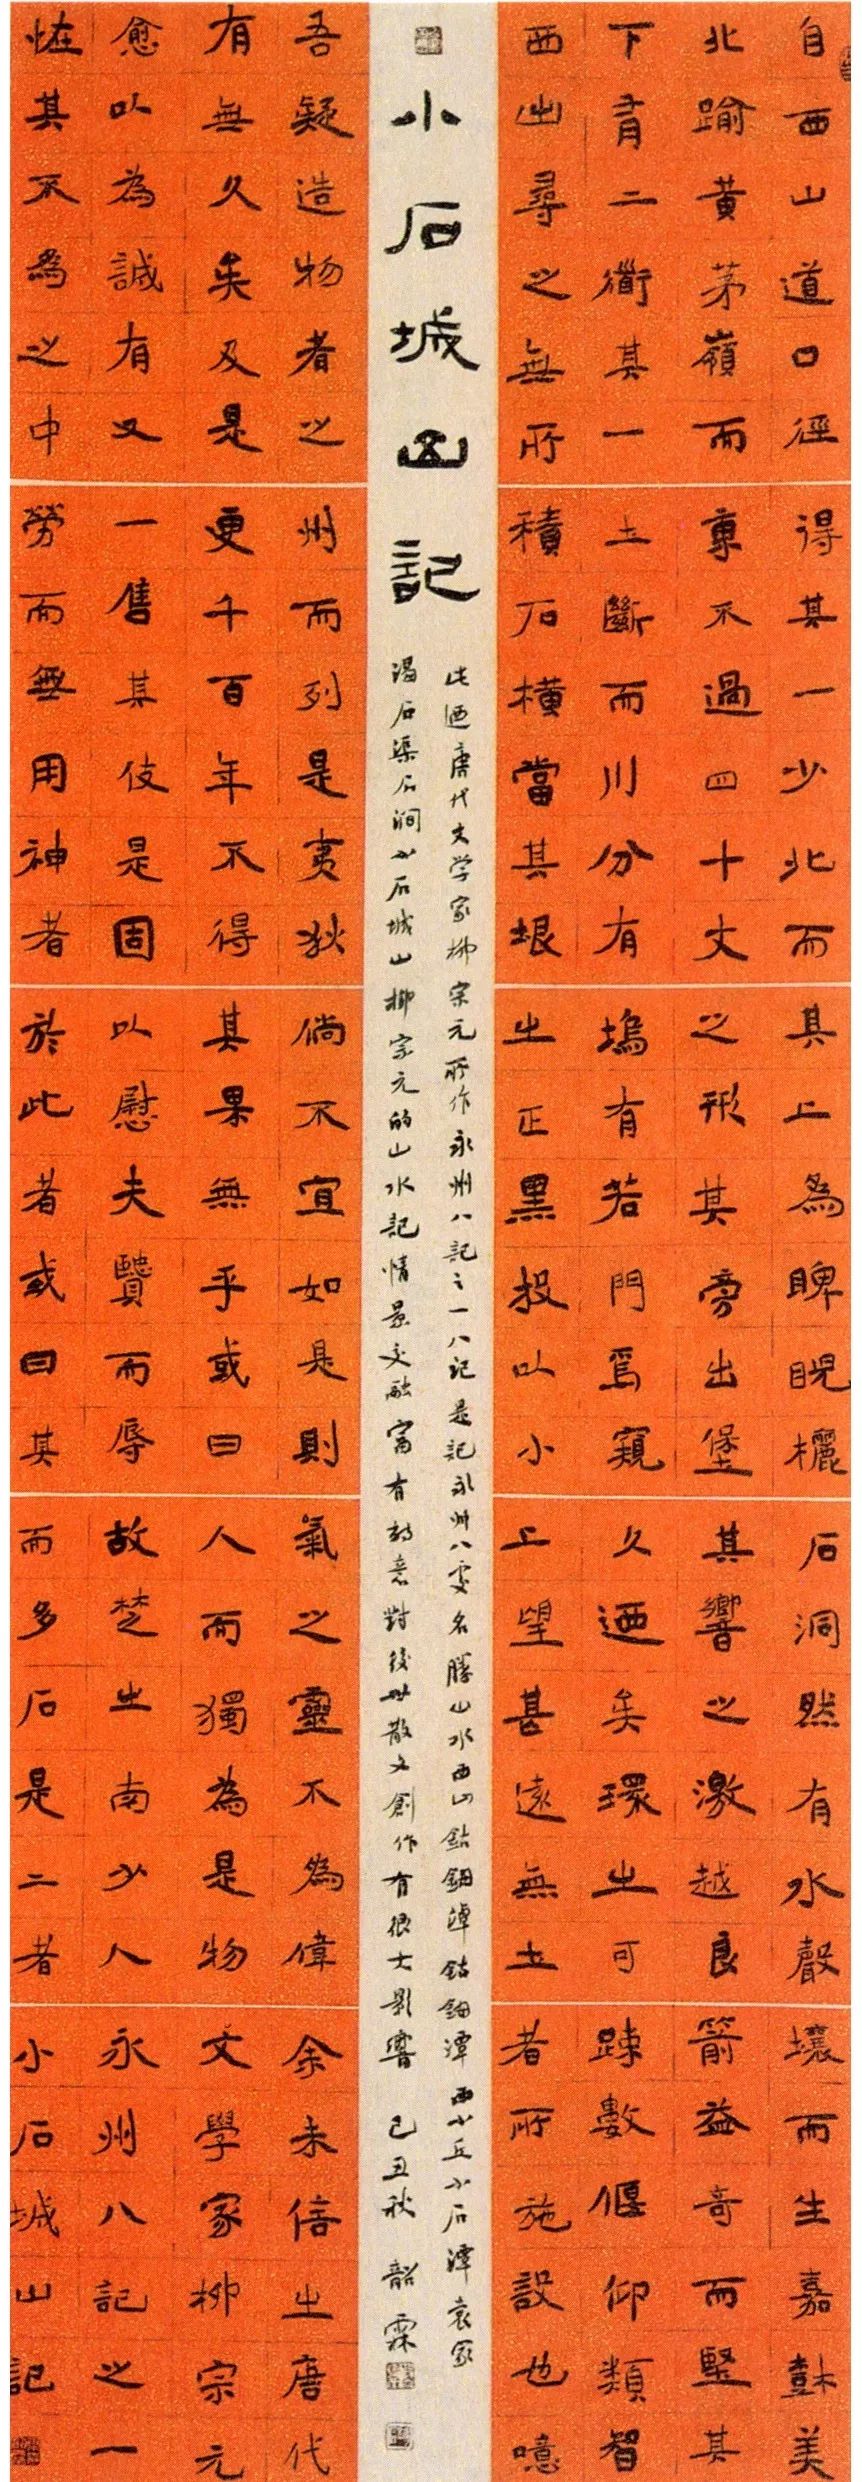 自西山道口徑
北踰黃茅嶺而
下有二衜其一
西出尋之無所
得其一少北而
東不過四十丈
土斷而川分有
積石橫當其垠
其上為睥睨欐
之形其旁出堡
塢有若門焉窺
之正黑投以小
石洞然有水聲
其響之激越良
久迺矣環之可
上望甚遠無土
壤而生嘉樹美
箭益奇而堅其
踈數偃仰類智
者所施設也噫
小石城山記
此迺唐代文学家柳宗元所作永州八記之一八記是記永州八處名勝山水西山鈷鉧潭鈷鉧潭西小丘小石潭袁家
渴石渠石澗小石城山柳宗元的山水記情景交融富有詩意對後世散文創作有很大影響 己丑秋 韶霖
吾疑造物者之
有無久矣及是
愈以為誠有又
恠其不為之中
州而列是夷狄
更千百年不得
一售其伎是固
勞而無用神者
倘不宜如是則
其果無乎或曰
以慰夫賢而辱
於此者或曰其
氣之靈不為偉
人而獨為是物
故楚之南少人
而多石是二者
余未信之唐代
文學家柳宗元
永州八記之一
小石城山記